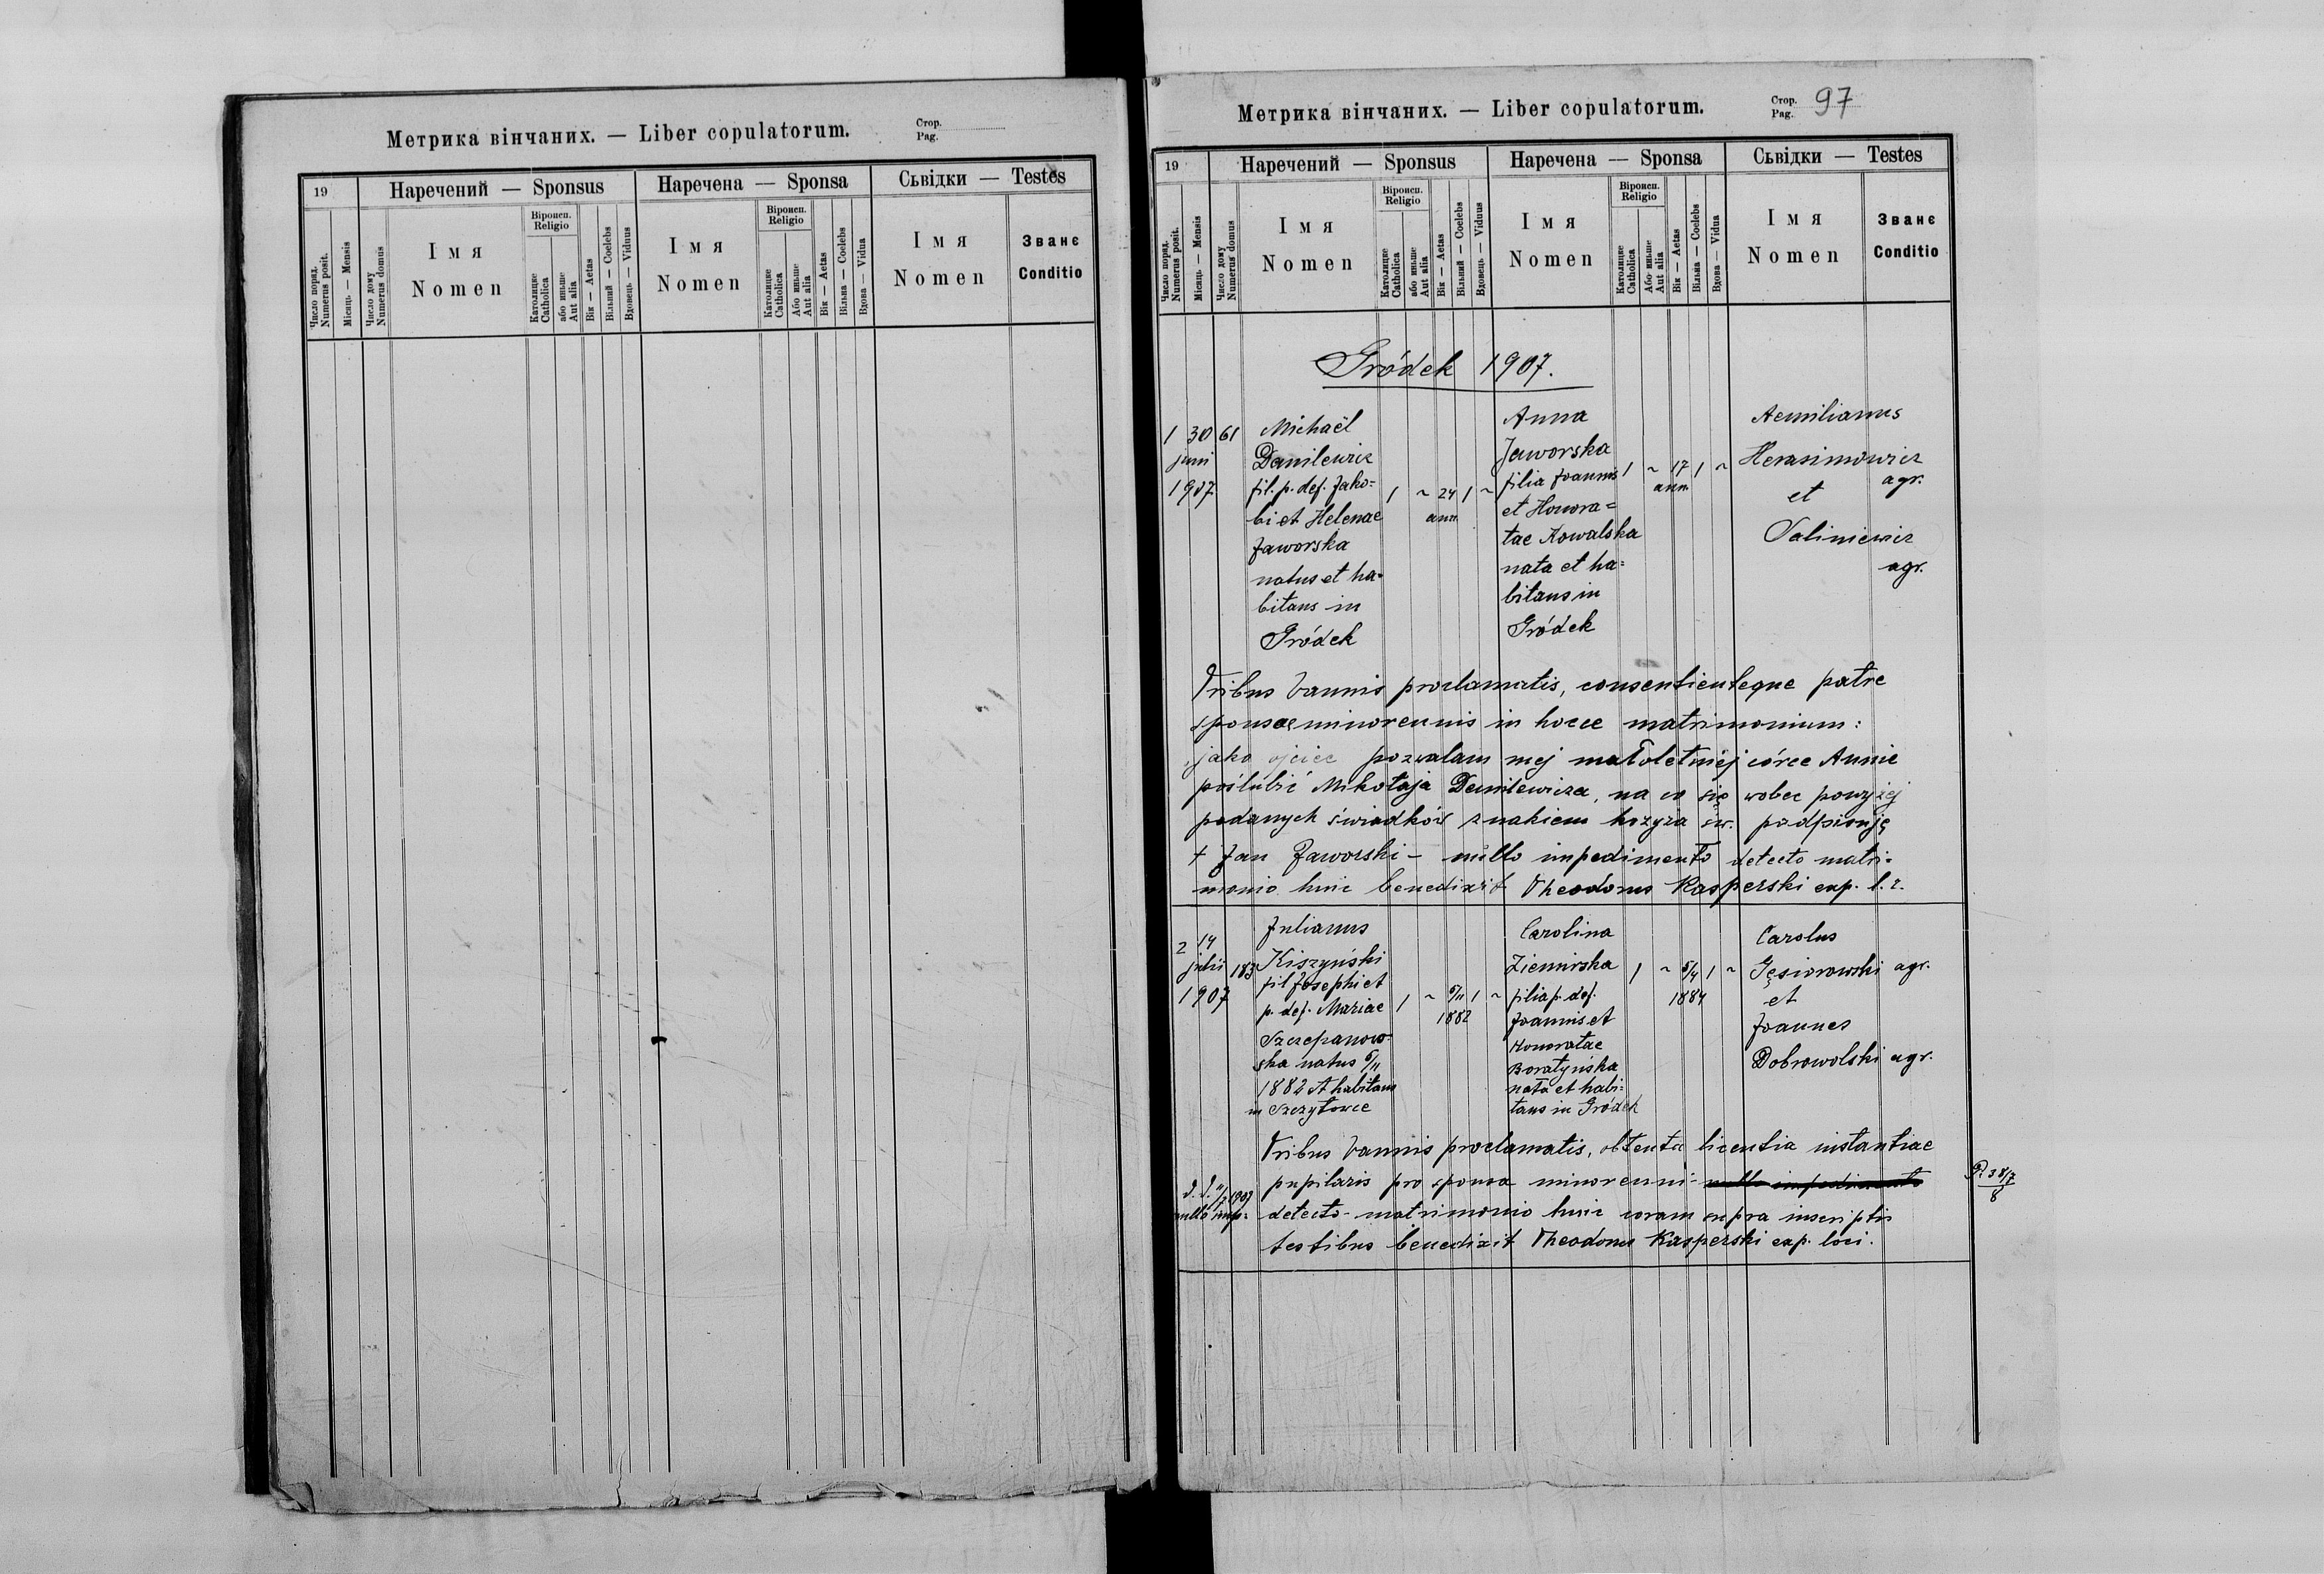 Метрика вінчаних. — Liber copulatorum.
Стор.
Pag.
19
Наречений — Sponsus
Наречена — Sponsa
Сьвідки — Testes
Число поряд.
Numerus posit.
Місяць — Mensis
Число дому
Numerus domus
Імя
Nomen
Віроисп.
Religio
Католицке
Catholica
або иньше
Aut alia
Вік — Aetas
Вільний — Coelebs
Вдовець — Viduus
Імя
Nomen
Віроисп.
Religio
Католицке
Catholica
Або иньше
Aut alia
Вік — Aetas
Вільна — Coelebs
Вдова — Vidua
Імя
Nomen
Званє
Conditio
Метрика вінчаних. — Liber copulatorum.
Стор.
Pag. 97
19
Наречений — Sponsus
Наречена — Sponsa
Сьвідки — Testes
Число поряд.
Numerus posit.
Місяць — Mensis
Число дому
Numerus domus
Імя
Nomen
Віроисп.
Religio
Католицке
Catholica
або иньше
Aut alia
Вік — Aetas
Вільний — Coelebs
Вдовець — Viduus
Імя
Nomen
Віроисп.
Religio
Католицке
Catholica
Або иньше
Aut alia
Вік — Aetas
Вільна — Coelebs
Вдова — Vidua
Імя
Nomen
Званє
Conditio
Gródek 1907.
1 30 61
juni
1907
Michaël
Danilewicz
fil. p. def. Jako=
bi et Helenae
Jaworska
natus et ha=
bitans in
Gródek
1 ~ 24 1 ~
ann.
Anna
Jaworska
filia Joannis
et Honora=
tae Kowalska
nata et ha=
bitans in
Gródek
1 ~ 17 1 ~
ann.
Aemilianus
Herasimowicz
agr.
et
Saliniewicz
agr.
Tribus bannis proclamatis, consentienteque patre
sponsae minorennis in hocce matrimonium:
jako ojciec pozwalam mej małoletniej córce Annie
poślubić Mikołaja Danilewicza, na co się wobec powyżej
podanych świadków znakiem krzyża św. podpisuję
+ Jan Jaworski – nullo impedimento detecto matri=
monio huic benedixit Theodorus Kasperski exp. l. r.
2 14
julii 183
1907
Julianus
Kiszyński
fil Josephi et
p. def. Mariae
Szczepanow=
ska natus 5/11
1882 et habitans
in Szczytowce
1 ~ 5/11 1 ~
1882
Carolina
Ziemirska
filia p. def.
Joannis et
Honoratae
Boratyńska
nata et habi=
tans in Gródek
1 ~ 5/4 1 ~
1884
Carolus
Gęsiorowski agr.
et
Joannes
Dobrowolski agr.
Tribus bannis proclamatis, obtenta licentia instantiae
pupilaris pro sponsa minorenni – nullo impedimento
d. d. 11/7 1907
nullo imp=
detecto – matrimonio huic coram supra inscriptis
testibus benedixit Theodorus Kasperski exp. loci.
38/7
8